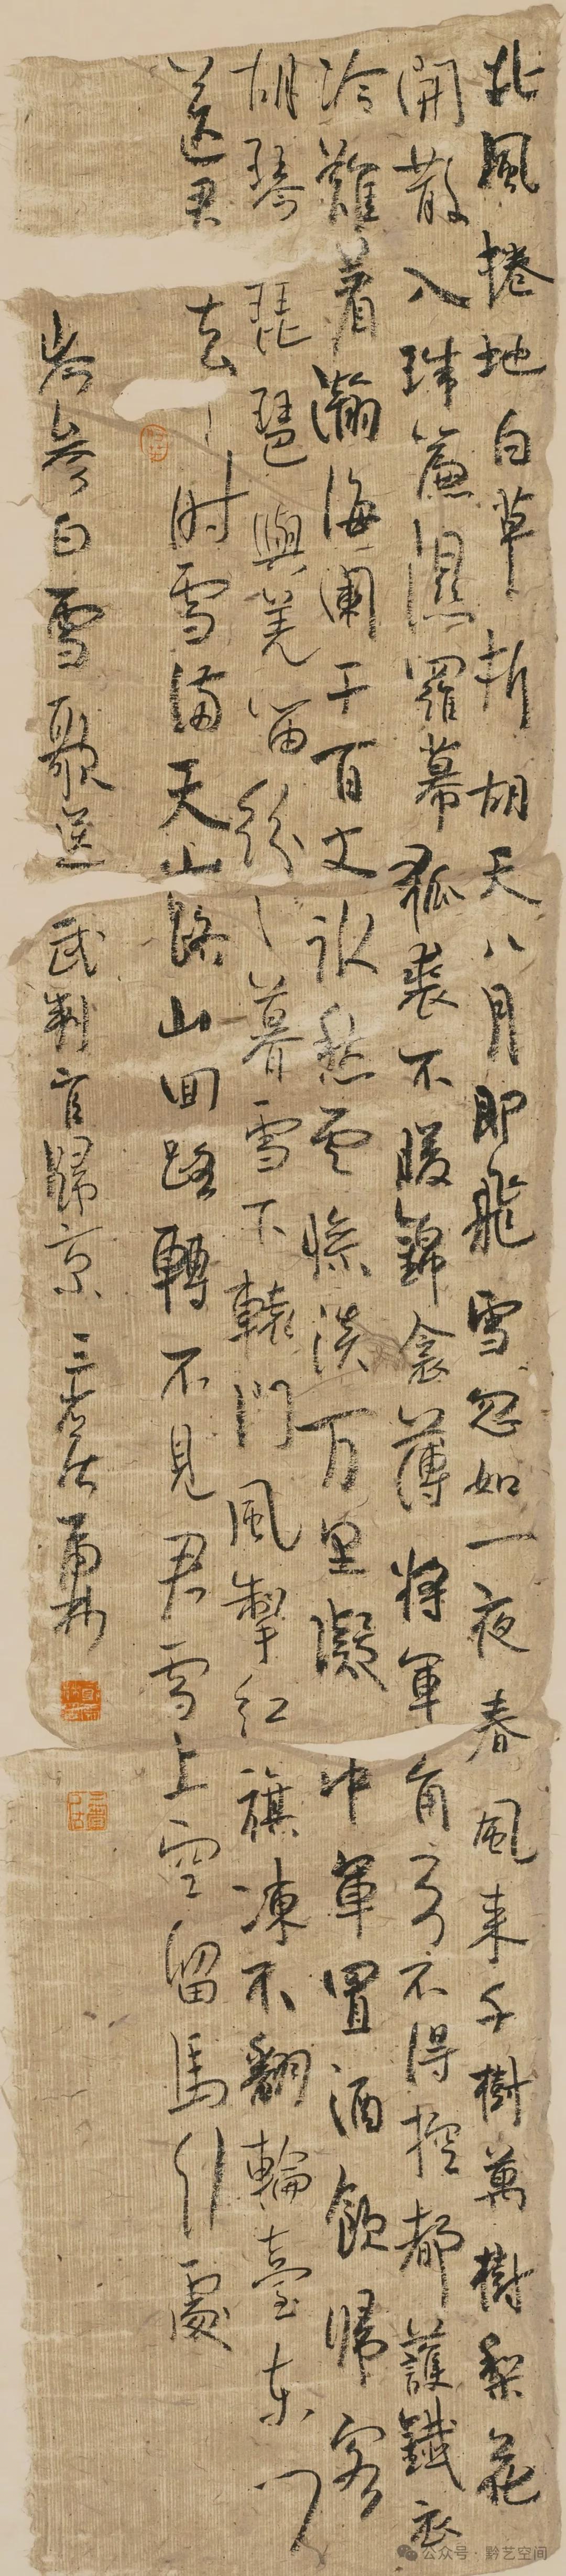 北風捲地白草折胡天八月即飛雪忽如一夜春風来千樹萬樹梨花
開散入珠簾濕羅幕狐裘不暖錦衾薄将軍角弓不得控都護鐵衣
冷難着瀚海闌干百丈冰愁雲惨淡万里凝中軍置酒飲歸客
胡琴琵琶與羌笛紛〻暮雪下轅門風掣红旗凍不翻輪臺东门
送君去〻时雪满天山路山回路轉不見君雪上空留馬行處
岑參白雪歌送武判官歸京三省居
公众号·黔艺空间